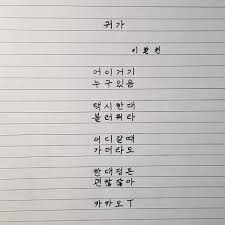 귀가
이환천
어이거기
누구있음
택시한대
불러줘라
어디갈때
가더라도
한대정돈
괜찮잖아
카카오T